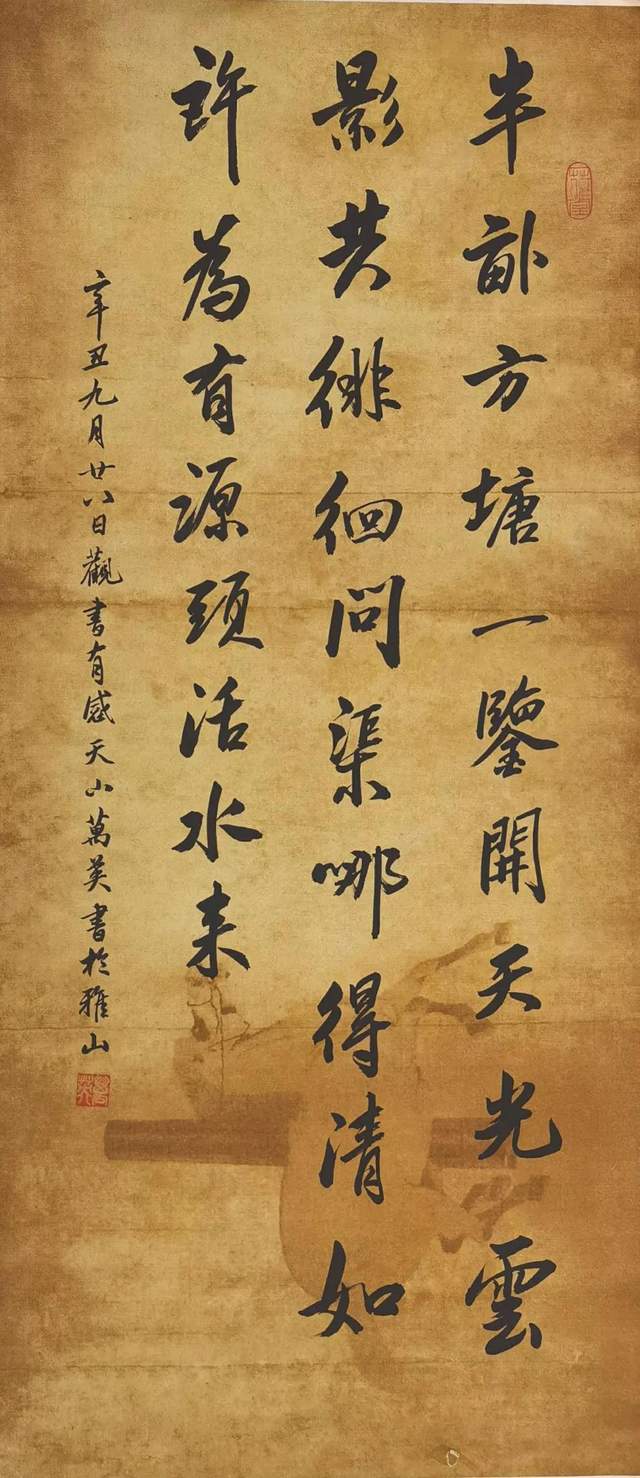 半畝方塘一鑒開天光雲
影共徘徊問渠哪得清如
許為有源頭活水来
辛丑九月廿八日觀書有感天山萬英書於雅山